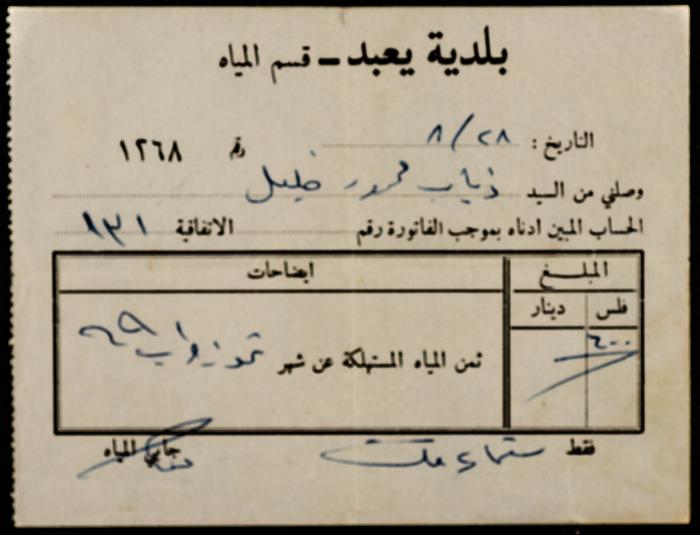 بلدية يعبد - قسم المياه
التاريخ : ٢٨/٨
رقم ١٢٦٨
وصلني من السيد ذياب محمود خليل
الحساب المبين ادناه بموجب الفاتورة رقم الاتفاقية ١٣١
المبلغ ايضاحات
فلس دينار
٦٠٠ ثمن المياه المستهلكة عن شهر تموز واب ٦٩
فقط ستماية فلس
جابي المياه